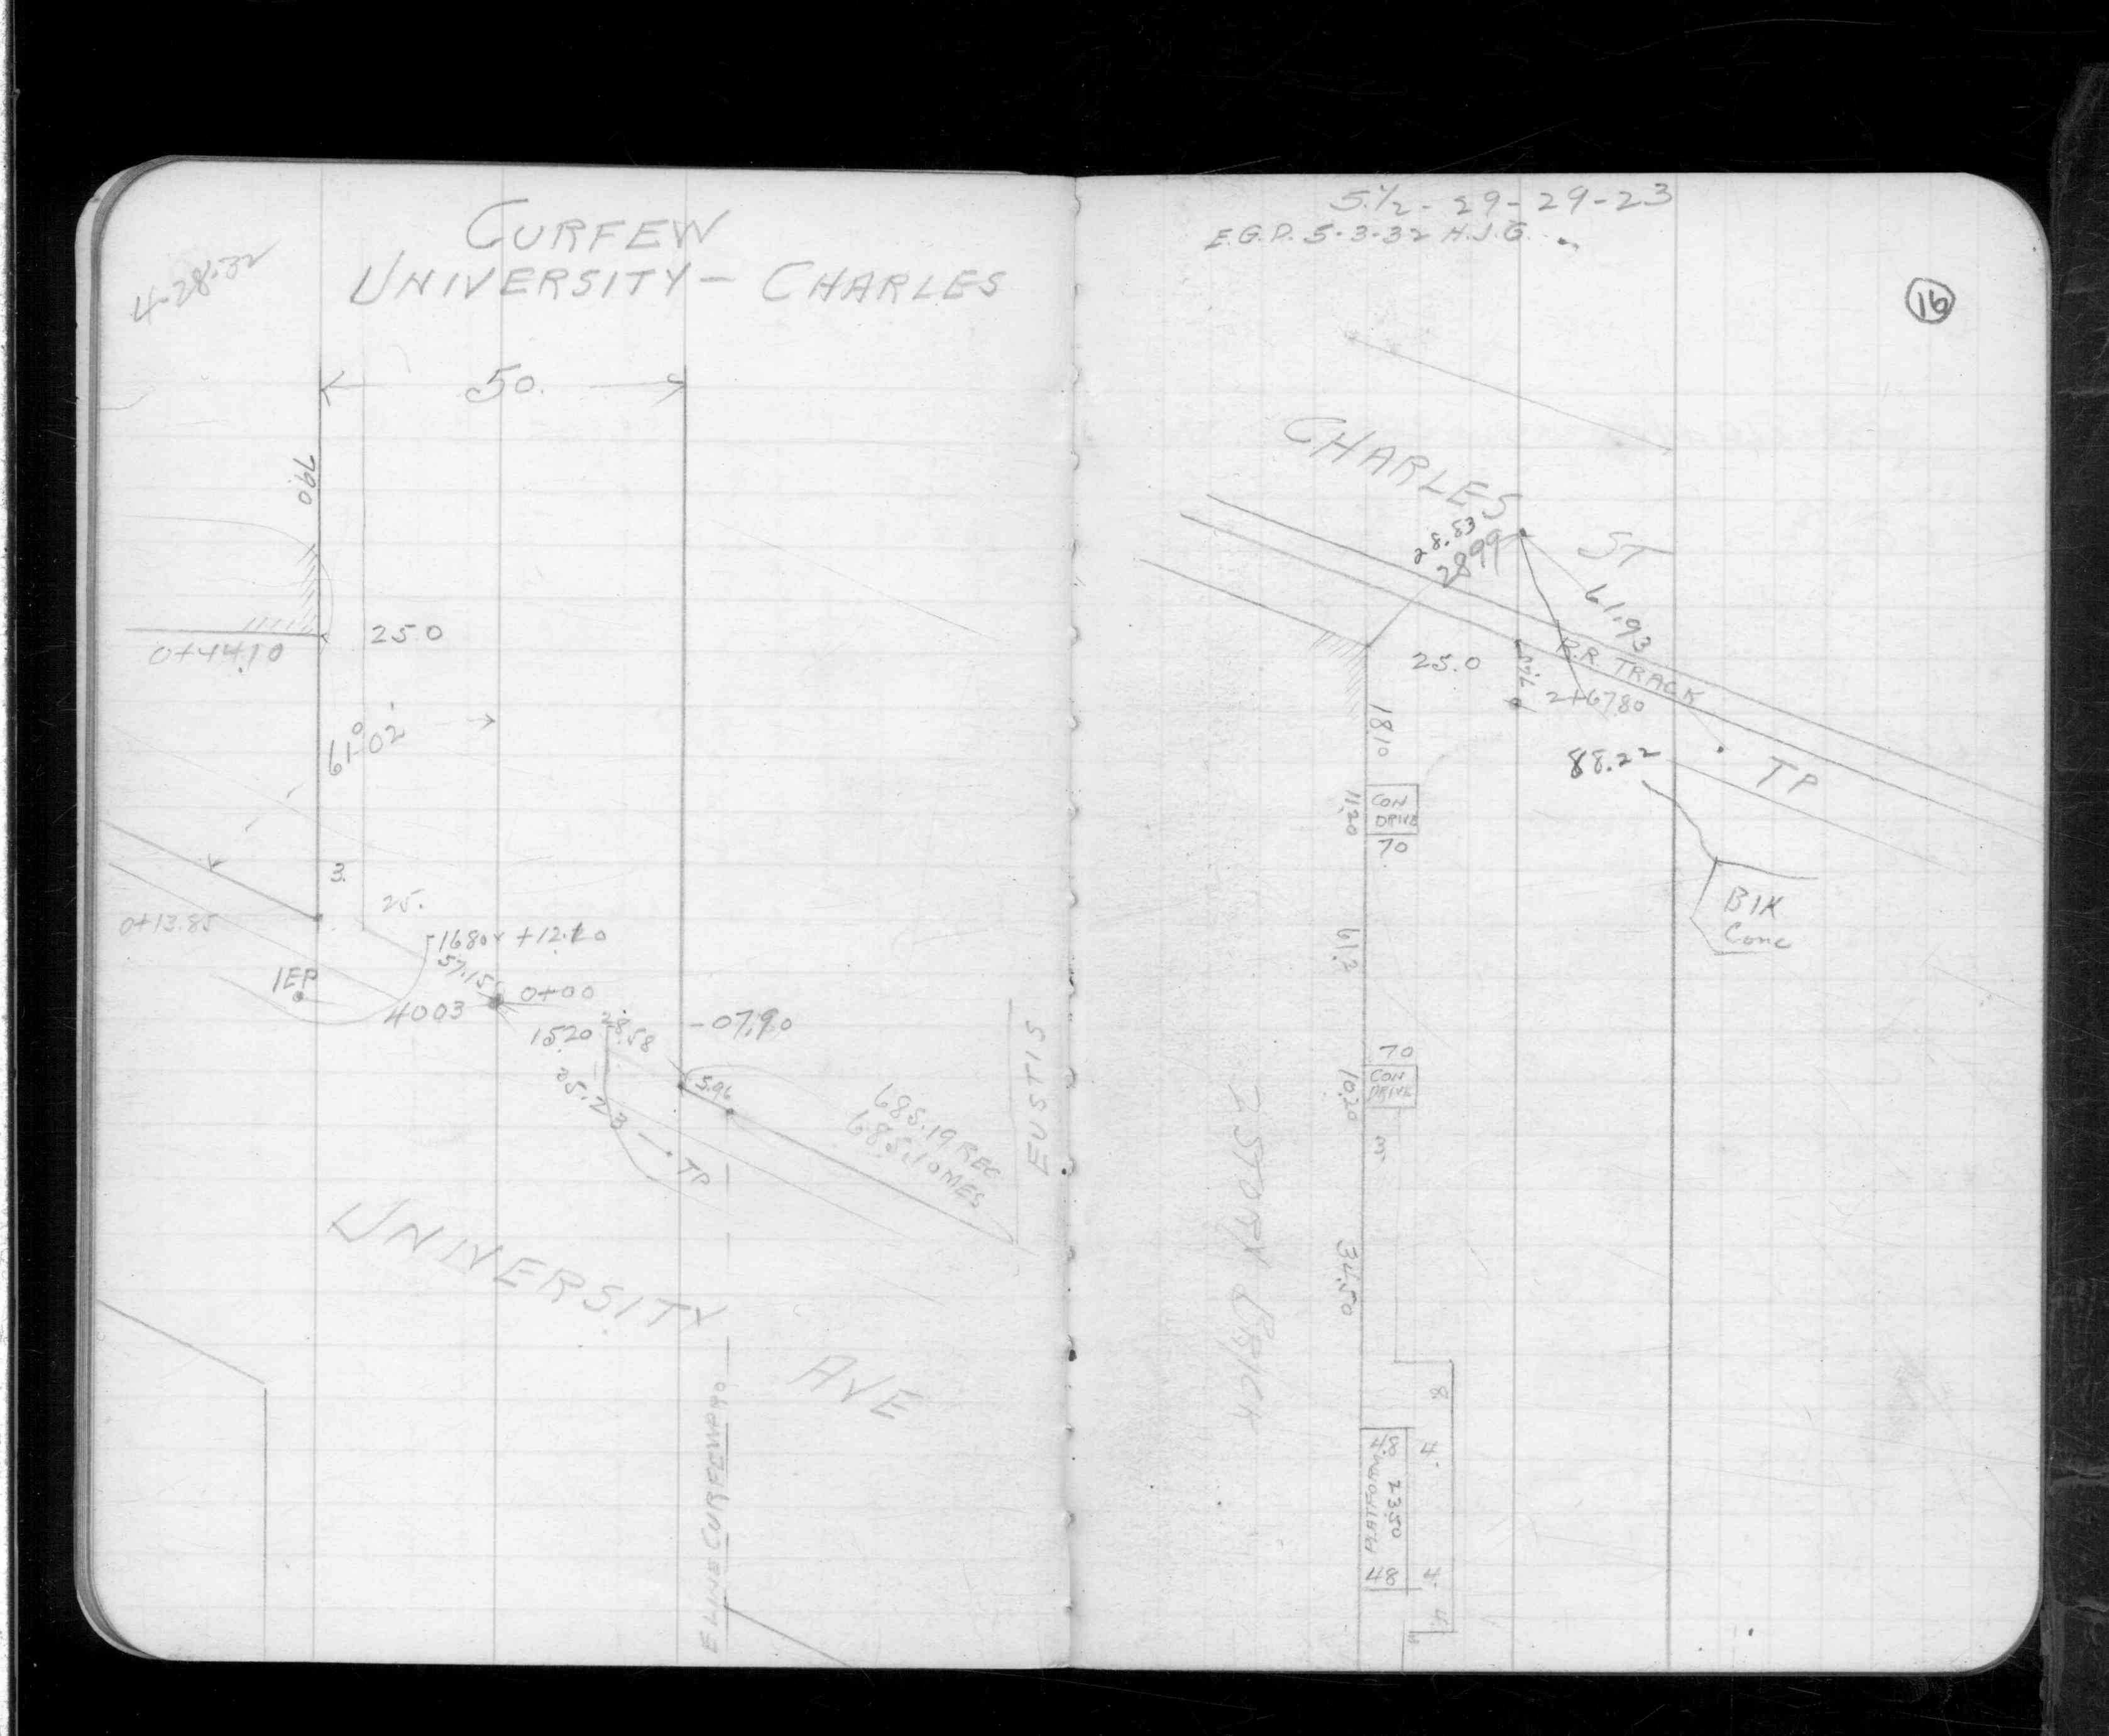 4-28-32
CURFEW
UNIVERSITY - CHARLES
50.
790
25.0
0+44.10
61°02'
3.
25.
0+13.85
+12.10
57.15
1EP
0+00
4003
28.58
1520
-07.90
35.23
5.96
TP
685.19 REC
685.10 MES
EUSTIS
UNIVERSITY
AVE
E LINE CURFEW
5 1/2 - 29-29-23
E.G.P. 5-3-32 H.J.G.
16
CHARLES
ST
28.83
2899
61.93
R.R. TRACK
25.0
2+67.80
18.10
88.22
TP
11.20
CON
DRIVE
70
BIK
Conc
61.2
70
10.20
CON
DRIVE
3
2 STORY BRICK
34.50
8
4.8
4
23.50
PLATFORM
48
4
4